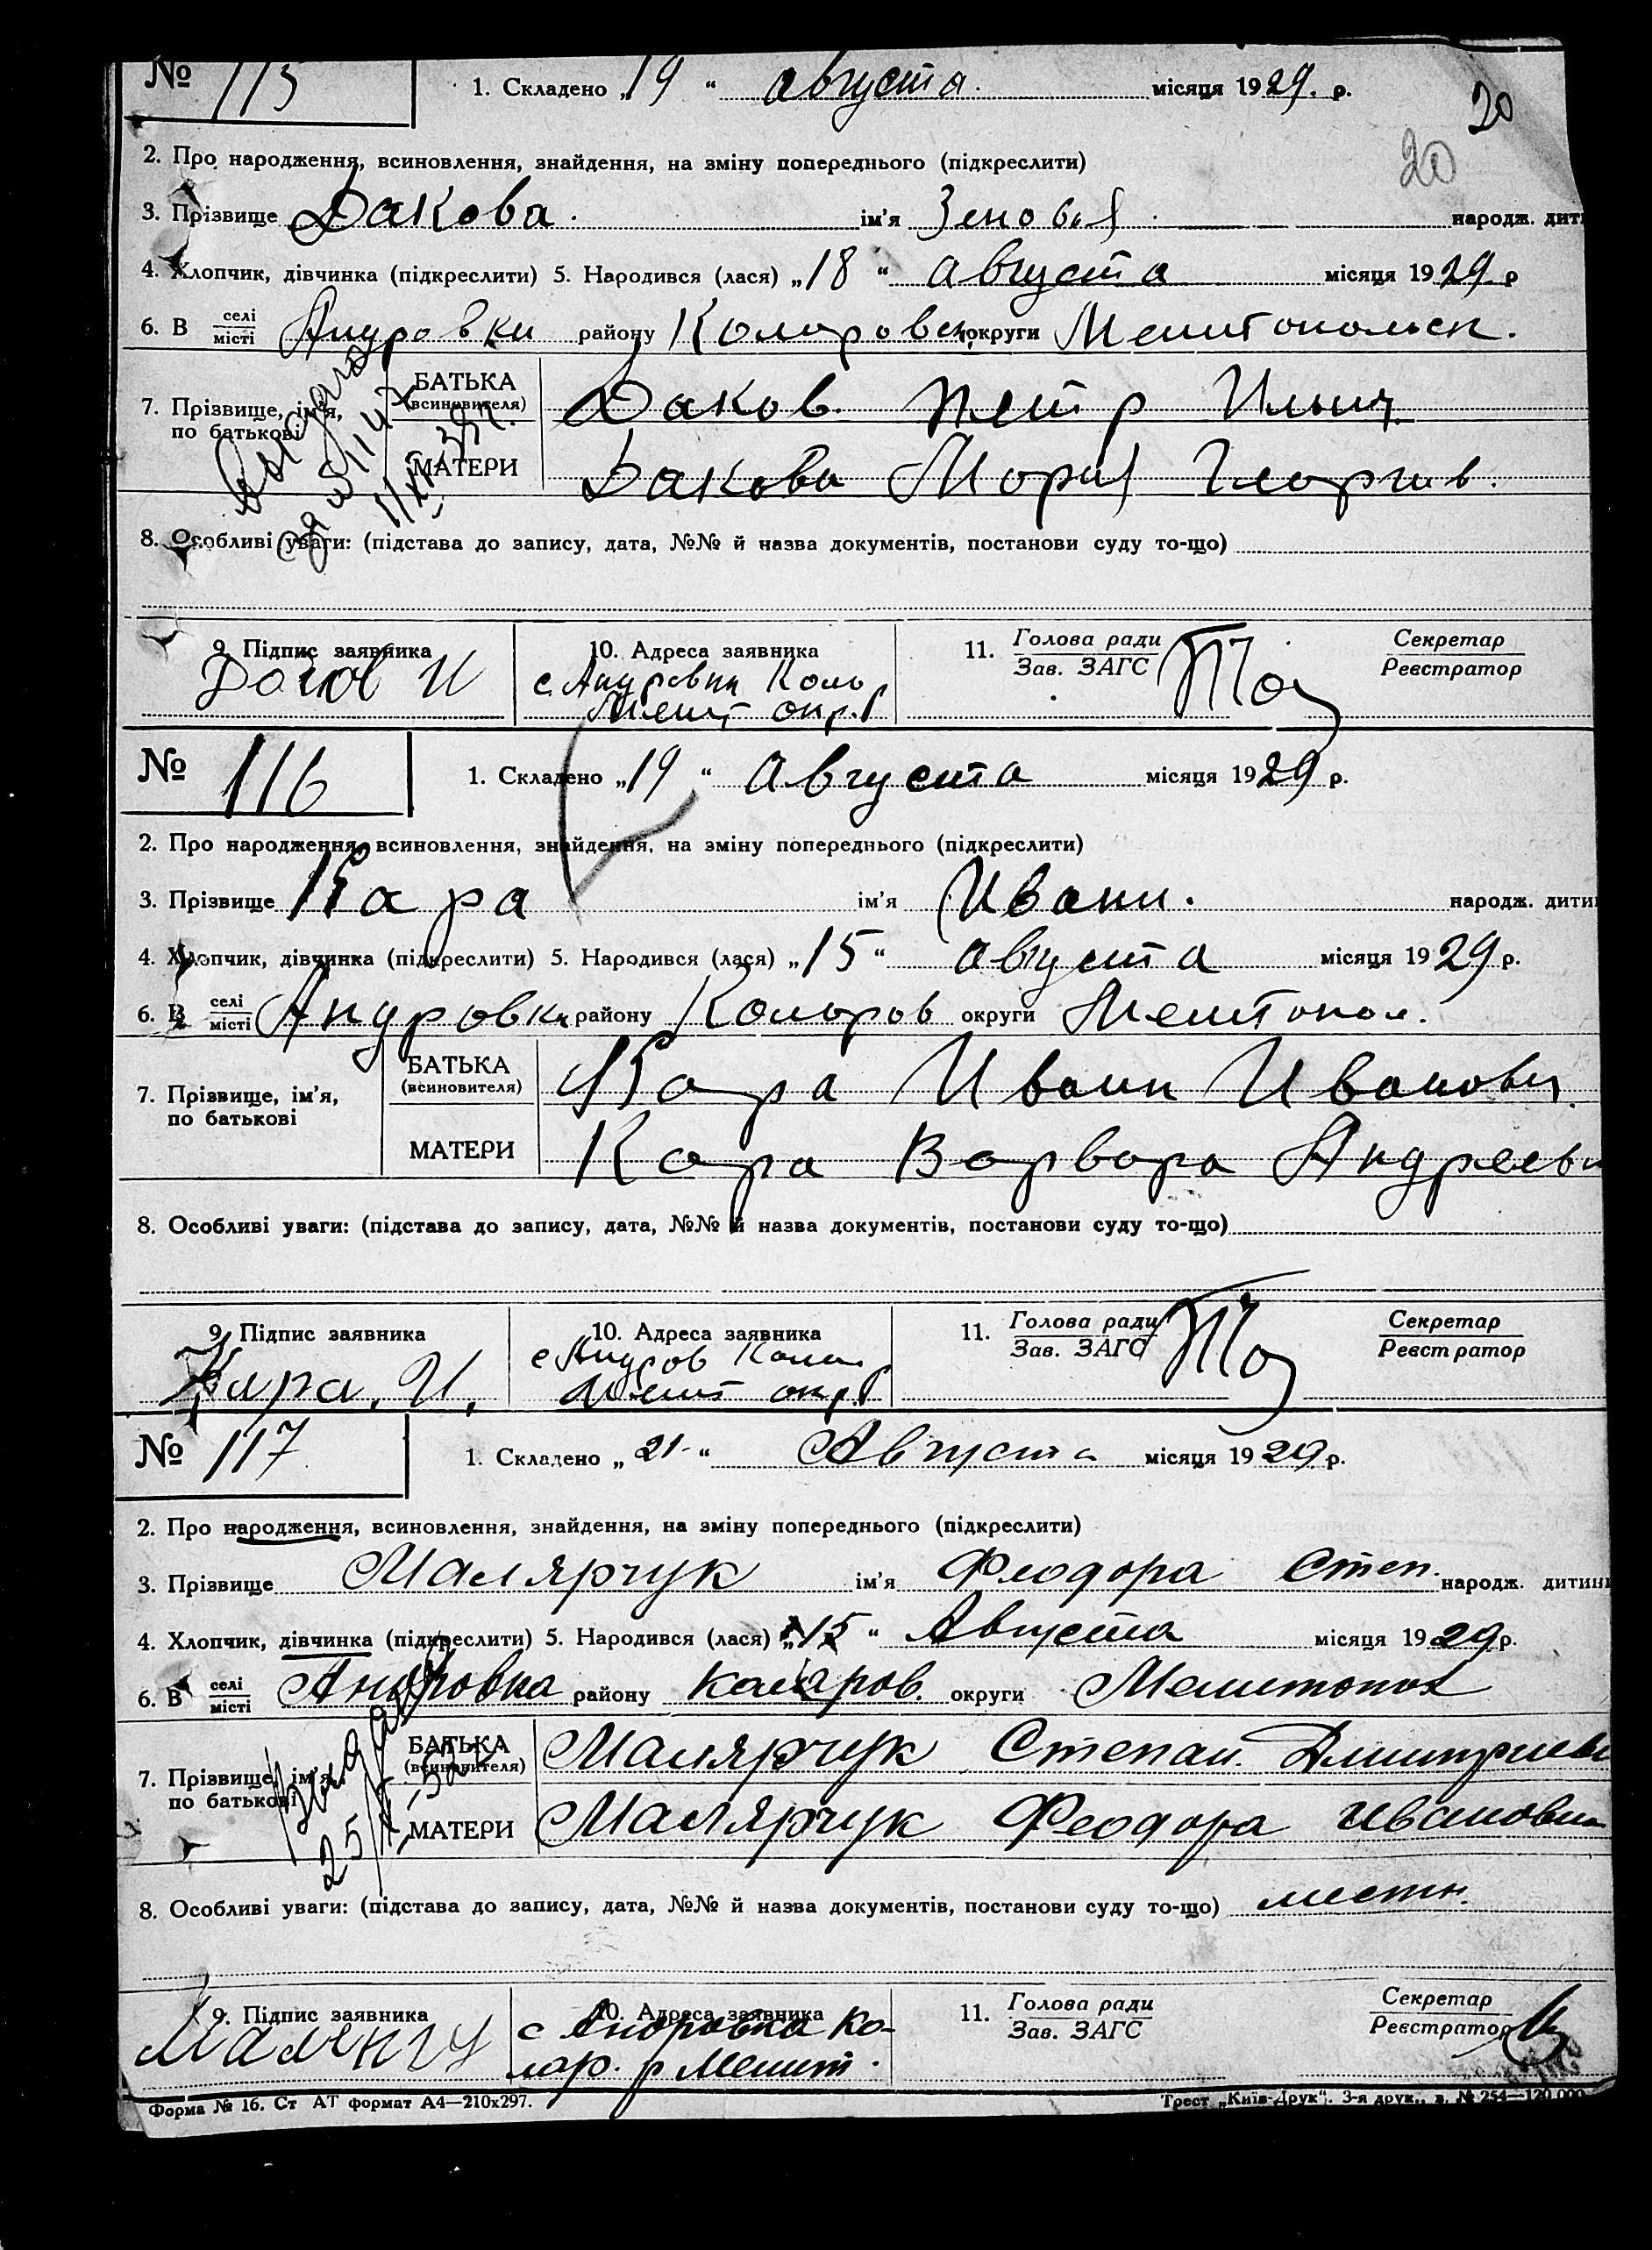 № 115 1. Складено „19“ августа. місяця 1929. р.
20
20
2. Про народження, всиновлення, знайдення, на зміну попереднього (підкреслити)
3. Прізвище Дакова. ім'я Зеновья. народж. дит
4. Хлопчик, дівчинка (підкреслити) 5. Народився (лася) „18“ августа місяця 1929 р
6. В селі місті Андровки району Коларовск округи Мелитопольск.
7. Прізвище, ім'я, по батькові БАТЬКА (всиновителя) Даков Петр Ильич.
МАТЕРИ Дакова Мория Георгив.
8. Особливі уваги: (підстава до запису, дата, №№ й назва документів, постанови суду то-що)
9. Підпис заявника 10. Адреса заявника 11. Голова ради Зав. ЗАГС Секретар Реєстратор
с. Андровки Колор
Мелит окр.
№ 116 1. Складено „19“ августа місяця 1929 р.
2. Про народження, всиновлення, знайдення, на зміну попереднього (підкреслити)
3. Прізвище Кара ім'я Иванн. народж. дити
4. Хлопчик, дівчинка (підкреслити) 5. Народився (лася) „15“ августа місяця 1929 р.
6. В селі місті Андровки району Колоров округи Мелитопол.
7. Прізвище, ім'я, по батькові БАТЬКА (всиновителя) Кара Иванн Иванович.
МАТЕРИ Кара Варвара Андреевн
8. Особливі уваги: (підстава до запису, дата, №№ й назва документів, постанови суду то-що)
9. Підпис заявника 10. Адреса заявника 11. Голова ради Зав. ЗАГС Секретар Реєстратор
Кара. И. с Андров Колар
Мелит окр.
№ 117 1. Складено „21“ Августа місяця 1929 р.
2. Про народження, всиновлення, знайдення, на зміну попереднього (підкреслити)
3. Прізвище Малярчук ім'я Феодора Степ. народж. дитин
4. Хлопчик, дівчинка (підкреслити) 5. Народився (лася) „15“ Августа місяця 1929 р.
6. В селі місті Андровка району Коларов. округи Мелитопол
7. Прізвище, ім'я, по батькові БАТЬКА (всиновителя) Малярчук Степан. Дмитриеви
МАТЕРИ Малярчук Феодора Ивановна
8. Особливі уваги: (підстава до запису, дата, №№ й назва документів, постанови суду то-що) местн.
9. Підпис заявника 10. Адреса заявника 11. Голова ради Зав. ЗАГС Секретар Реєстратор
с Андровка Ко-
лар. р Мелит.
Форма № 16. Ст АТ формат А4—210х297. Трест „Київ-Друк“. 3-я друк., з. № 254—120.000